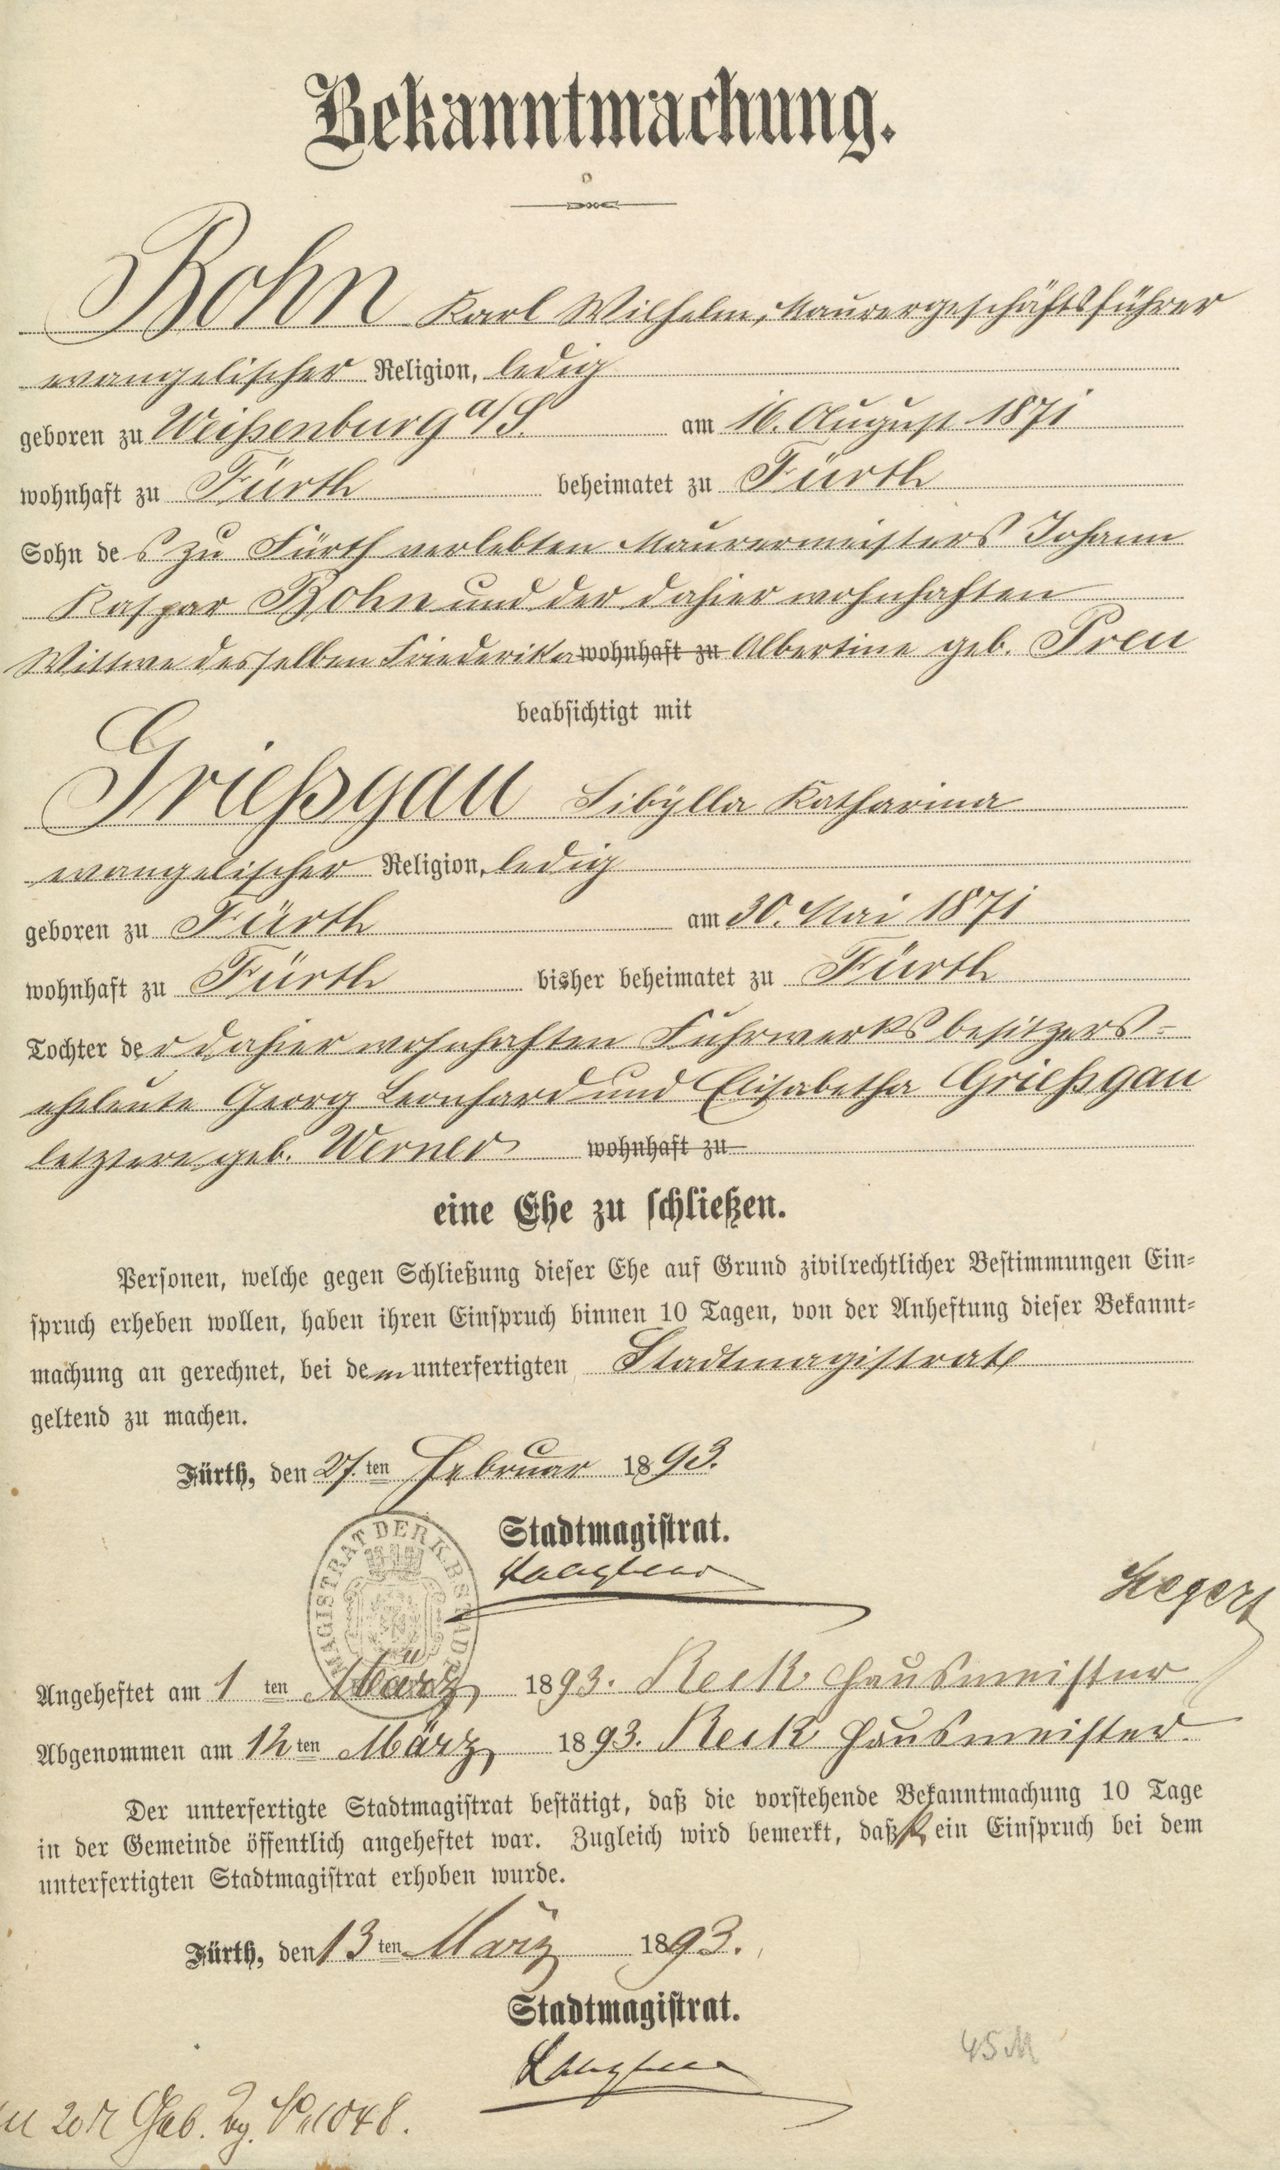 Bekanntmachung.
Rohn Karl Wilhelm, Maurergeschäftsführer
evangelischer Religion, ledig
geboren zu Weißenburg a/S. am 16. August 1871
wohnhaft zu Fürth beheimatet zu Fürth
Sohn des zu Fürth verlebten Maurermeisters Johann
Kaspar Rohn und der dahier wohnhaften
Wittwe desselben Friederika wohnhaft zu Albertine geb. Preu
beabsichtigt mit
Grießgau Sibÿlla Katharina
evangelischer Religion, ledig
geboren zu Fürth am 30. Mai 1871
wohnhaft zu Fürth bisher beheimatet zu Fürth
Tochter der dahier wohnhaften Fuhrwerksbesitzers-
eheleute Georg Leonhard und Elisabetha Grießgau
letztere geb. Werner wohnhaft zu
eine Ehe zu schließen.
Personen, welche gegen Schließung dieser Ehe auf Grund zivilrechtlicher Bestimmungen Ein-
spruch erheben wollen, haben ihren Einspruch binnen 10 Tagen, von der Anheftung dieser Bekannt-
machung an gerechnet, bei dem unterfertigten Stadtmagistrat
geltend zu machen.
Fürth, den 27.ten Februar 1893.
Stadtmagistrat.
MAGISTRAT DER K. B. STADT
Hegert
Angeheftet am 1ten März 1893. Reck Hausmeister
Abgenommen am 12ten März 1893. Reck Hausmeister.
Der unterfertigte Stadtmagistrat bestätigt, daß die vorstehende Bekanntmachung 10 Tage
in der Gemeinde öffentlich angeheftet war. Zugleich wird bemerkt, daß kein Einspruch bei dem
unterfertigten Stadtmagistrat erhoben wurde.
Fürth, den 13ten März 1893.
Stadtmagistrat.
45 M
Geb. 1048.